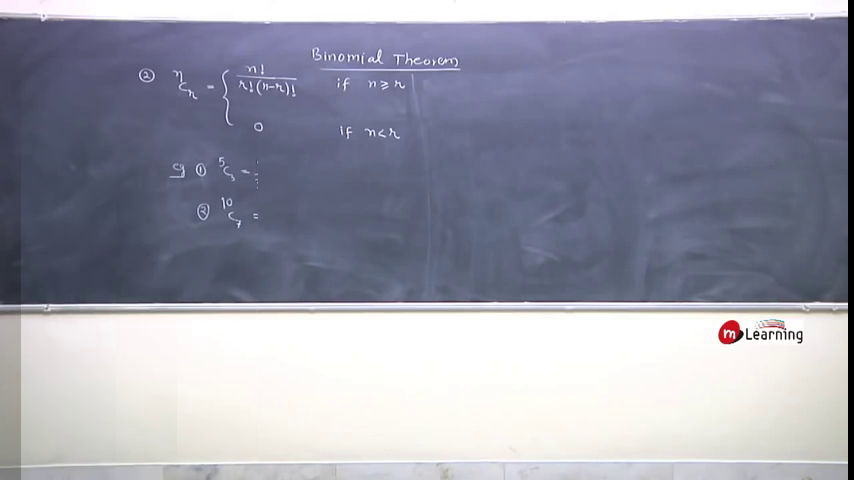 Binomial Theorem
② ⁿCᵣ = { n! / r!(n-r)! if n ≥ r
0 if n < r
eg ① ⁵C₃ =
② ¹⁰C₇ =
m Learning